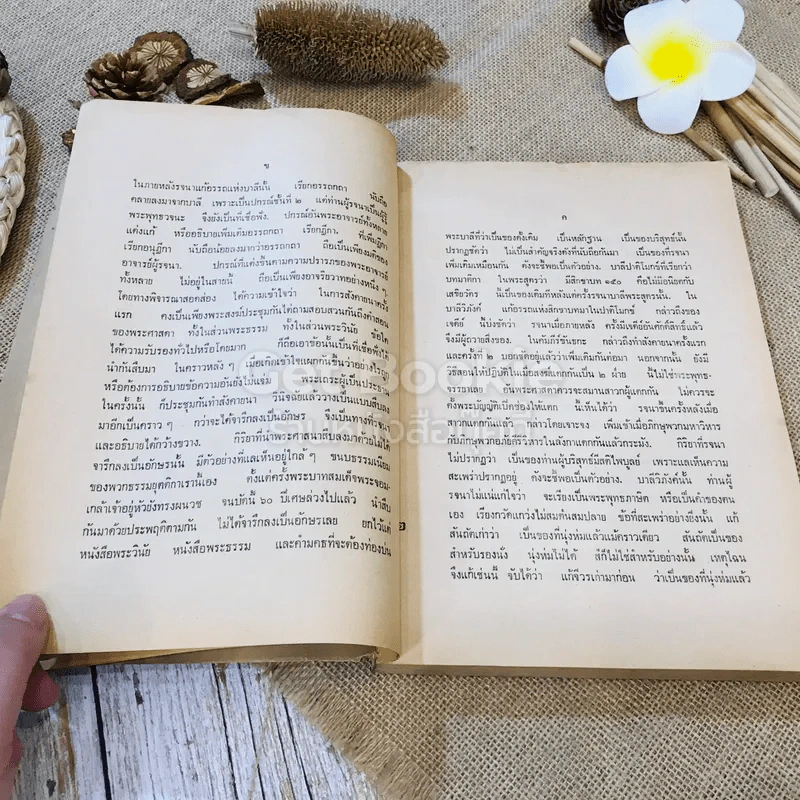 ข
ในภายหลังรจนาแก้อรรถแห่งบาลีนั้น เรียกอรรถกถา นับถือ
คลายลงมาจากบาลี เพราะเป็นปกรณ์ชั้นที่ ๒ แต่ท่านผู้รจนาเป็นผู้รู้
พระพุทธวจนะ จึงยังเป็นที่เชื่อฟัง. ปกรณ์อันพระอาจารย์ทั้งหลาย
แต่งแก้ หรืออธิบายเพิ่มเติมอรรถกถา เรียกฎีกา. ที่เพิ่มฎีกา
เรียกอนุฎีกา นับถือน้อยลงมากว่าอรรถกถา ถือเป็นเพียงมติของ
อาจารย์ผู้รจนา. ปกรณ์ที่แต่งขึ้นตามความปรารภของพระอาจารย์
ทั้งหลาย ไม่อยู่ในสายนี้ ถือเป็นเพียงอาจริยวาทอย่างหนึ่ง ๆ.
โดยทางพิจารณาสอดส่อง ได้ความเข้าใจว่า ในการสังคายนาครั้ง
แรก คงเป็นเพียงพระสงฆ์ประชุมกันไต่ถามสอบสวนกันถึงคำสอน
ของพระศาสดา ทั้งในส่วนพระธรรม ทั้งในส่วนพระวินัย ข้อใด
ได้ความรับรองทั่วไปหรือโดยมาก ก็ถือเอาข้อนั้นเป็นที่เชื่อฟังได้
นำกันสืบมา ในคราวหลัง ๆ เมื่อเกิดเข้าใจแผกกันขึ้นว่าอย่างไรถูก
หรือต้องการอธิบายข้อความอันยังไม่แจ่ม พระเถระผู้เป็นประธาน
ในครั้งนั้น ก็ประชุมกันทำสังคายนา วินิจฉัยแล้ววางเป็นแบบสืบลง
มาอีกเป็นคราว ๆ กว่าจะได้จารึกลงเป็นอักษร จึงเป็นทางที่รจนา
และอธิบายได้กว้างขวาง. กิริยาที่นำพระศาสนาสืบลงมาด้วยไม่ได้
จารึกลงเป็นอักษรนั้น มีตัวอย่างที่แลเห็นอยู่ใกล้ ๆ ขนบธรรมเนียม
ของพวกธรรมยุตติกาเรานี้เอง ตั้งแต่ครั้งพระบาทสมเด็จพระจอม-
เกล้าเจ้าอยู่หัวยังทรงผนวช จนบัดนี้ ๖๐ ปีเศษล่วงไปแล้ว นำสืบ
กันมาด้วยประพฤติตามกัน ไม่ได้จารึกลงเป็นอักษรเลย ยกไว้แต่
หนังสือพระวินัย หนังสือพระธรรม และคำมคธที่จะต้องท่องบ่น
ค
พระบาลีที่ว่าเป็นของดั้งเดิม เป็นหลักฐาน เป็นของบริสุทธิ์นั้น
ปรากฏชัดว่า ไม่เป็นสำคัญจริงดังที่นับถือกันมา เป็นของที่รจนา
เพิ่มเติมเหมือนกัน ดังจะชี้พอเป็นตัวอย่าง. บาลีปาติโมกข์ที่เรียกว่า
บทมาติกา ในพระสูตรว่า มีสิกขาบท ๑๕๐ คือไม่มีอนิยตกับ
เสขิยวัตร นี้เป็นของเดิมที่หลังแต่ครั้งรจนาบาลีพระสูตรนั้น. ใน
บาลีวิภังค์ แก้อรรถแห่งสิกขาบทมาในปาติโมกข์ กล่าวถึงของ
เจดีย์ นี้บ่งชัดว่า รจนาเมื่อภายหลัง ครั้งมีเจดีย์อันศักดิ์สิทธิ์แล้ว
จึงมีผู้ถวายสิ่งของ. ในคัมภีร์ขันธกะ กล่าวถึงทำสังคายนาครั้งแรก
และครั้งที่ ๒ บอกชัดอยู่แล้วว่าเพิ่มเติมกันต่อมา นอกจากนั้น ยังมี
วิธีสอนให้ปฏิบัติในเมื่อสงฆ์แตกกันเป็น ๒ ฝ่าย นี้ไม่ใช่พระพุทธ-
จรรยาเลย อันพระศาสดาควรจะสมานสาวกผู้แตกกัน ไม่ควรจะ
ตั้งพระบัญญัติเปิดช่องให้แตก นี้เห็นได้ว่า รจนาขึ้นครั้งหลังเมื่อ
สาวกแตกกันแล้ว กล่าวโดยเจาะจง เพิ่มเข้าเมื่อภิกษุพวกมหาวิหาร
กับภิกษุพวกอภัยคิรีวิหารในลังกาแตกกันแล้วกระมัง. กิริยาที่รจนา
ไม่ปรากฏว่า เป็นของท่านผู้บริสุทธิ์มีสติไพบูลย์ เพราะแลเห็นความ
สะเพร่าปรากฏอยู่ ดังจะชี้พอเป็นตัวอย่าง. บาลีวิภังค์นั้น ท่านผู้
รจนาไม่แน่แก่ใจว่า จะเรียงเป็นพระพุทธภาษิต หรือเป็นคำของตน
เอง เรียงกวัดแกว่งไม่สมต้นสมปลาย ข้อที่สะเพร่าอย่างยิ่งนั้น แก้
สันถัตเก่าว่า เป็นของที่นุ่งห่มแล้วแม้คราวเดียว สันถัตเป็นของ
สำหรับรองนั่ง นุ่งห่มไม่ได้ สีก็ไม่ใช่สำหรับอย่างนั้น เหตุไฉน
จึงแก้เช่นนี้ จับได้ว่า แก้จีวรเก่ามาก่อน ว่าเป็นของที่นุ่งห่มแล้ว
Get Bookie
ร้านหนังสือกู๊ดดี้